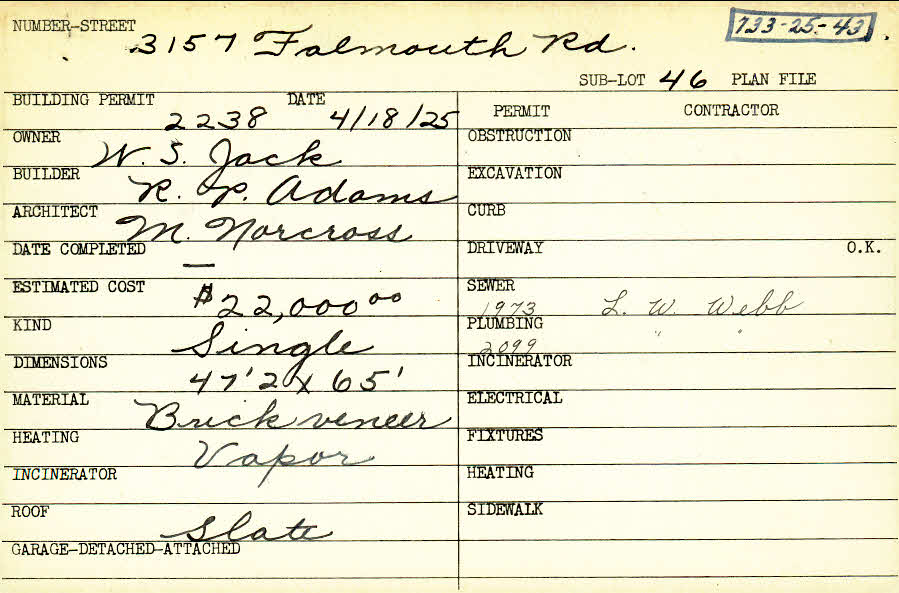 NUMBER-STREET 3157 Falmouth Rd. 733-25-43
SUB-LOT 46 PLAN FILE
BUILDING PERMIT 2238 DATE 4/18/25
OWNER W. S. Jack
BUILDER R. P. Adams
ARCHITECT M. Norcross
DATE COMPLETED —
ESTIMATED COST $22,000.00
KIND Single
DIMENSIONS 47'2 x 65'
MATERIAL Brick veneer
HEATING Vapor
INCINERATOR
ROOF Slate
GARAGE-DETACHED-ATTACHED
PERMIT CONTRACTOR
OBSTRUCTION
EXCAVATION
CURB
DRIVEWAY O.K.
SEWER 1973 L. W. Webb
PLUMBING 2099 " "
INCINERATOR
ELECTRICAL
FIXTURES
HEATING
SIDEWALK